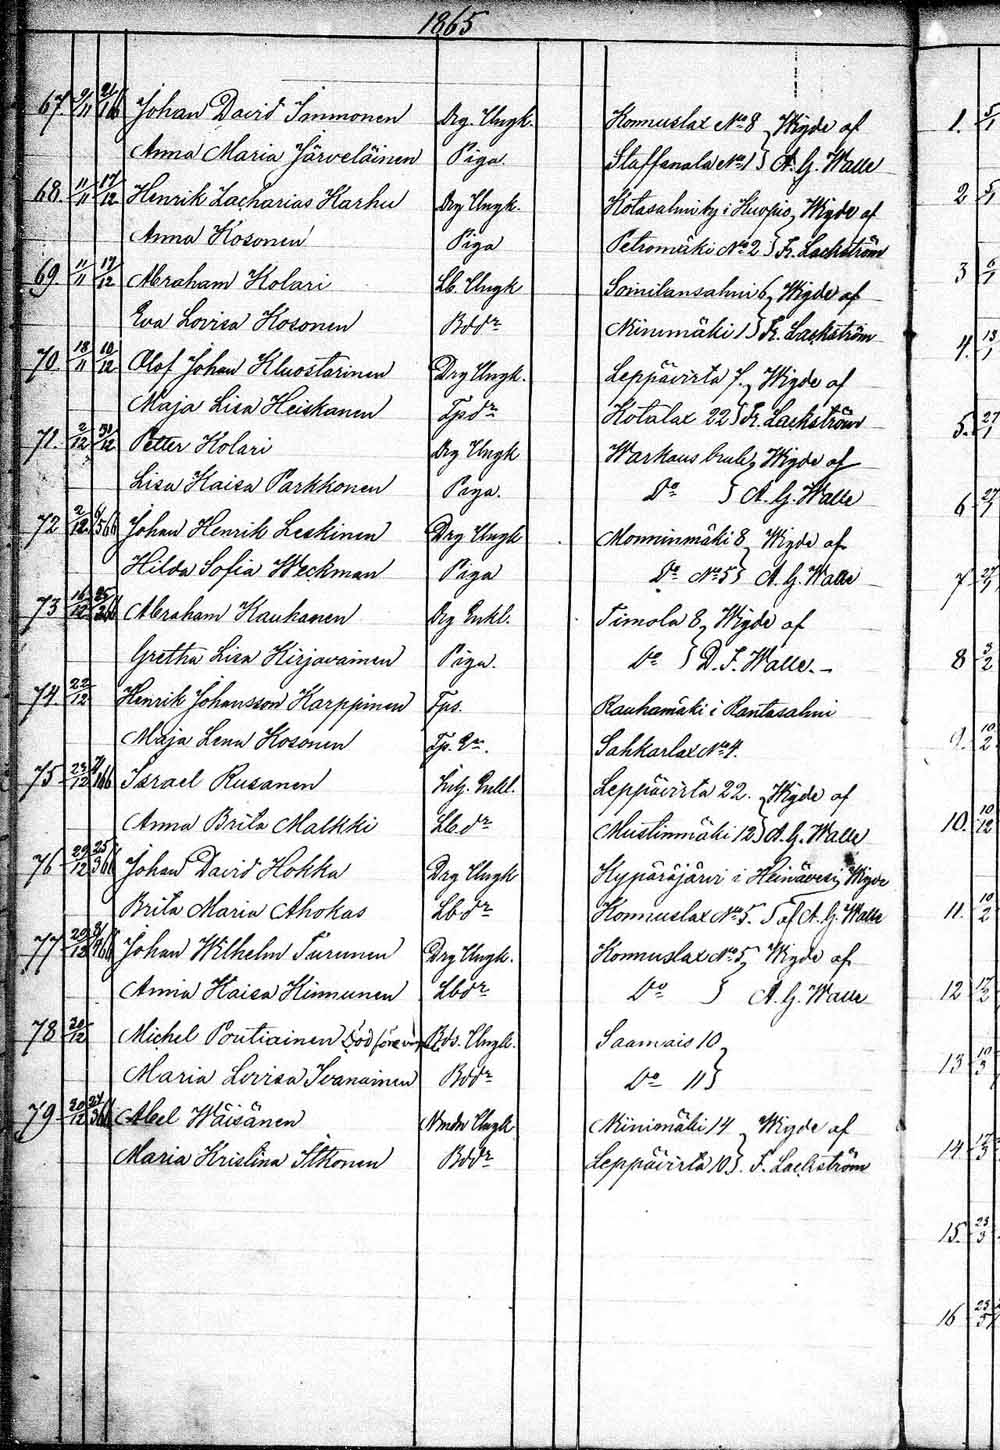 1865
67. 9/11 21/1 66 Johan David Immonen Drg. Ungk. Konnuslax No 8 } Wigde af
Anna Maria Järveläinen Piga Staffanala No 1 } A. G. Walle
68. 11/11 17/12 Henrik Zacharias Karhu Drg Ungk. Kotasalmi by i Kuopio } Wigde af
Anna Kosonen Piga Petromäki No 2 } Fr. Lackström
69. 11/11 17/12 Abraham Kolari Lb. Ungk Soinilansalmi 6 } Wigde af
Eva Lovisa Kosonen Bddr Niinimäki 1 } Fr. Lackström
70. 18/11 10/12 Olof Johan Kluostarinen Drg Ungk. Leppävirta 7. } Wigde af
Maja Lisa Heiskanen Tpdr Kotalax 22 } Fr. Lackström
71. 2/12 31/12 Petter Kolari Drg Ungk Warkaus bruk } Wigde af
Lisa Kaisa Parkkonen Piga. Do } A. G. Walle
72 2/12 Johan Henrik Leskinen Drg Ungk Monninmäki 8 } Wigde af
Hilda Sofia Weckman Piga Do No 5 } A. G. Walle
73 16/12 25/2 66 Abraham Kauhanen Drg Enkl. Timola 8 } Wigde af
Gretha Lisa Kirjavainen Piga. Do } D. F. Walle. –
74 22/12 Henrik Johansson Karppinen Tps. Rauhamäki i Rantasalmi
Maja Lena Kosonen Tp. Sahkarlax No 4.
75 23/12 Israel Rusanen Inh. Enkl. Leppävirta 22. } Wigde af
Anna Brita Malkki Lbdr Mustinmäki 12 } A. G. Walle
76 29/12 25/3 66 Johan David Hokka Drg Ungk Kypäräjärvi i Heinävesi } Wigde
Brita Maria Ahokas Lbdr Konnuslax No 5. } af A. G. Walle
77 Johan Wilhelm Turunen Drg Ungk. Konnuslax No 5 } Wigde af
Anna Kaisa Kinnunen Lbdr Do } A. G. Walle
78 30/12 Michel Poutiainen Död före Bds. Ungk. Saamais 10 }
Maria Lovisa Ivanainen Bddr Do 11 }
79 30/12 24/3 66 Abel Wäisänen Ungk Niinimäki 14 } Wigde af
Maria Kristina Itkonen Bddr Leppävirta 10 } F. Lackström
1. 5/1
2 5/1
3 6/1
4. 13/1
5. 27/1
6 27/1
7. 27/1
8 3/2
9. 10/2
10. 10/12
11. 10/2
12 17/2
13 10/3
14 17/3
15. 23/3
16